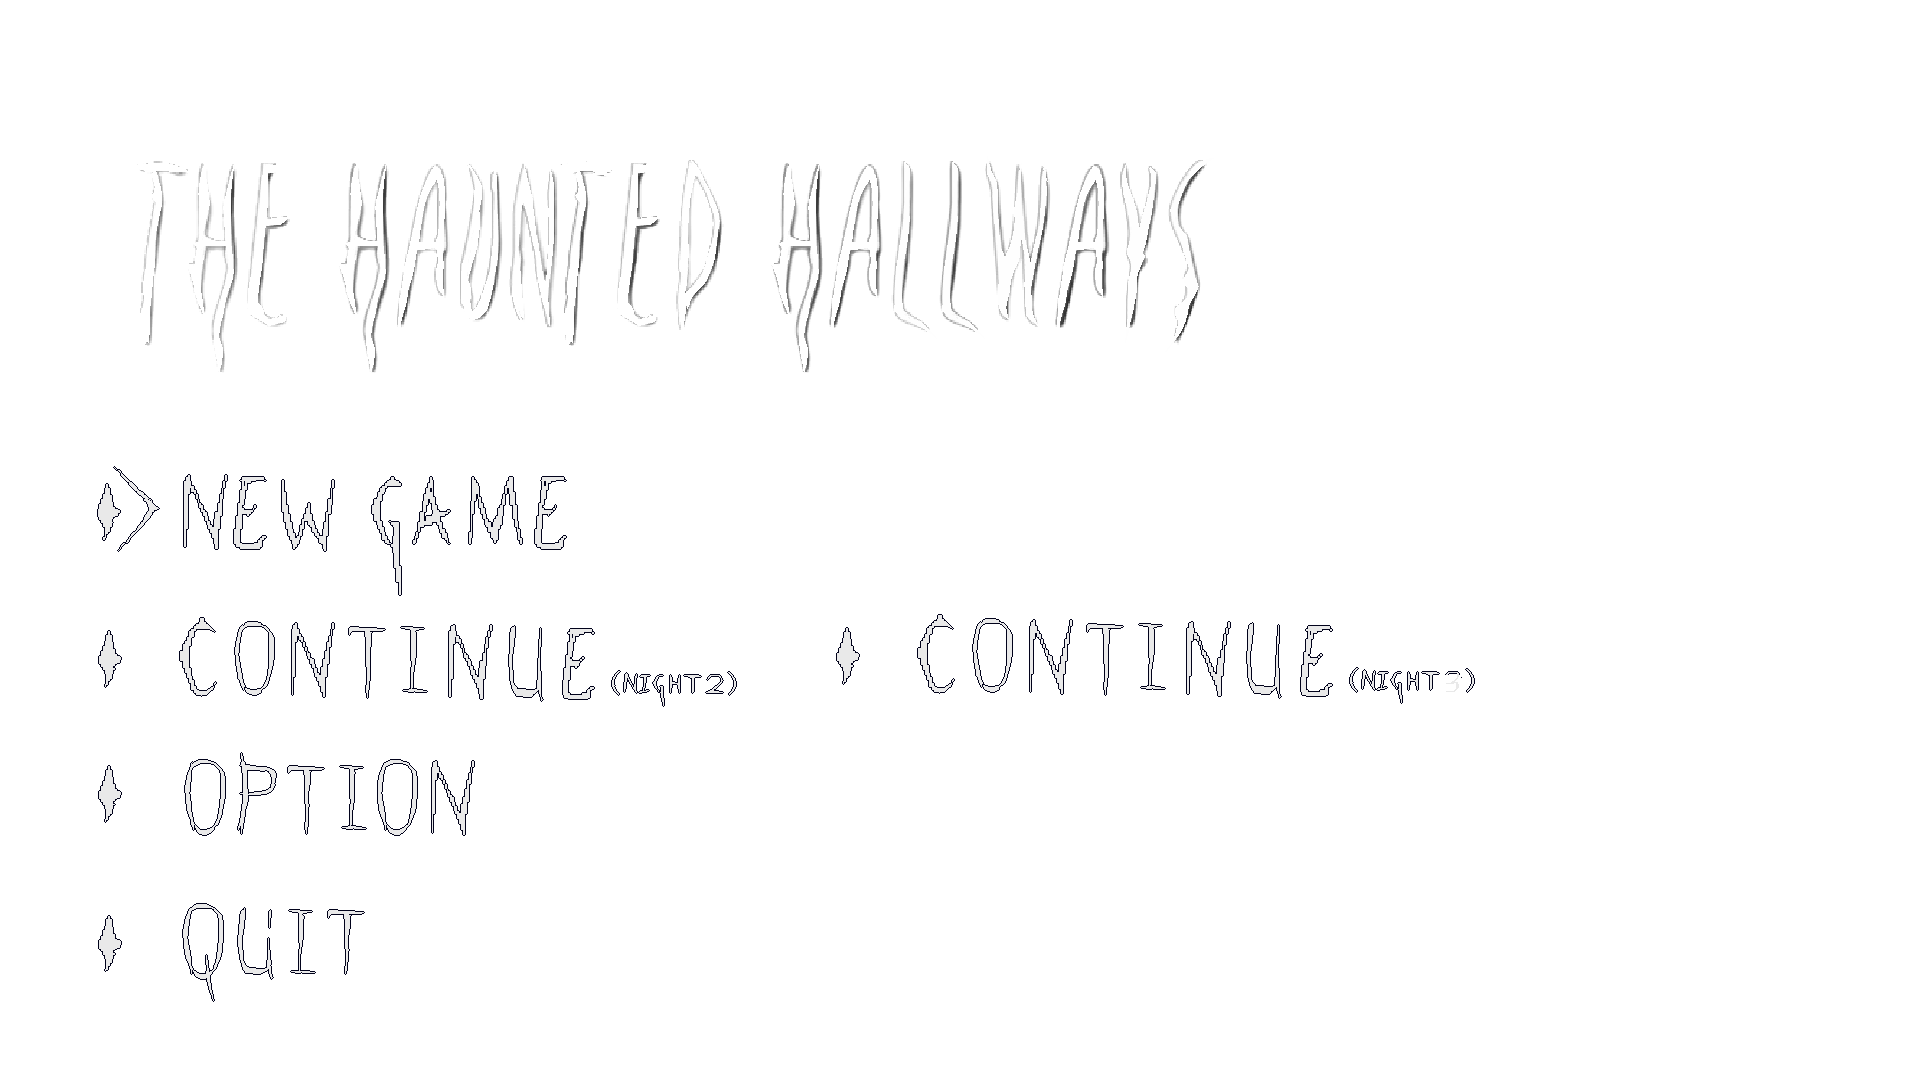 THE HAUNTED HALLWAYS
> NEW GAME
CONTINUE (NIGHT 2)
CONTINUE (NIGHT 3)
OPTION
QUIT